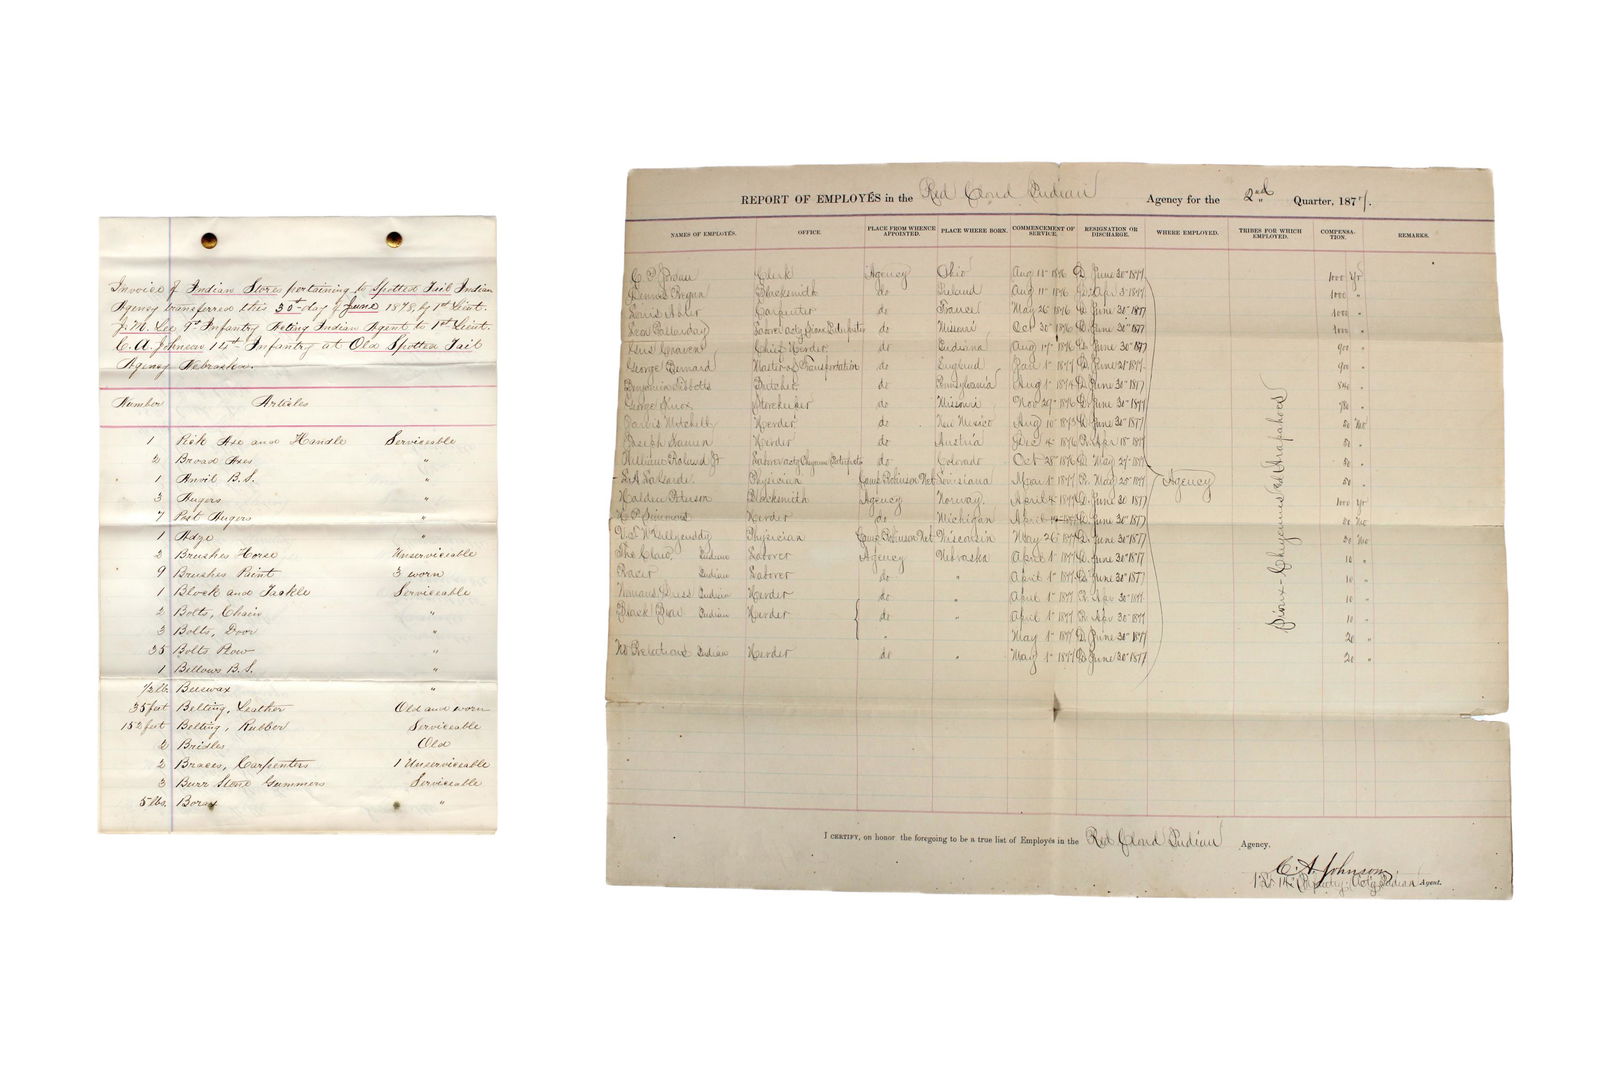 Invoice of Indian Stores pertaining to Spotted Tail Indian
Agency transferred this 30th day of June 1878, by 1st Lieut.
J. M. Lee 9th Infantry Acting Indian Agent to 1st Lieut.
C. A. Johnson 14th Infantry at Old Spotted Tail
Agency Nebraska.
Number Articles
1 Pick Axe and Handle Serviceable
2 Broad Axes "
1 Anvil B.S. "
3 Augers "
7 Post Augers "
1 Adze "
2 Brushes Horse Unserviceable
9 Brushes Paint 3 worn
1 Block and Tackle Serviceable
2 Bolts, Chain "
3 Bolts, Door "
35 Bolts Plow "
1 Bellows B.S. "
1/2 lb. Beeswax "
35 feet Belting, Leather Old and worn
152 feet Belting, Rubber Serviceable
2 Bridles Old
2 Braces, Carpenters 1 Unserviceable
3 Burr Stone Gummers Serviceable
5 lbs. Borax "
REPORT OF EMPLOYÉS in the Red Cloud Indian Agency for the 2nd Quarter, 1877.
NAMES OF EMPLOYÉS. OFFICE. PLACE FROM WHENCE APPOINTED. PLACE WHERE BORN. COMMENCEMENT OF SERVICE. RESIGNATION OR DISCHARGE. WHERE EMPLOYED. TRIBES FOR WHICH EMPLOYED. COMPENSATION. REMARKS.
C P Jordan Clerk Agency Ohio Aug 11 1876 D. June 30 1877 1000 Yr
Dennis Blacksmith do Ireland Aug 11 1876 Apr 3 1877 1000 "
Louis Carpenter do France May 26 1876 D. June 30 1877 1000 "
Leon Palladay Laborer actg Sioux Interpreter do Missouri Oct 30 1876 D. June 30 1877 1000 "
Craven Chief Herder do Indiana Aug 17 1876 D. June 30 1877 900 "
George Master of Transportation do England Jan 1 1877 D. June 21 1877 900 "
Benjamin Tibbetts Butcher do Pennsylvania Aug 1 1874 D. June 30 1877 "
George Knox Storekeeper do Missouri Nov 20 1876 D. June 30 1877 "
Mitchell Herder do New Mexico Aug 10 1875 D. June 30 1877 50 Mo
Joseph Herder do Austria Dec 4 1876 R. Apr 15 1877 50 "
William Rowland Jr Laborer actg Cheyenne Interpreter do Colorado Oct 28 1876 D. May 27 1877 50 "
Physician Camp Robinson Neb Louisiana Mar 1 1877 R. May 25 1877 50 "
Peterson Blacksmith Agency Norway April 4 1877 D. June 30 1877 1000 Yr
Simmons Herder do Michigan April 1877 D. June 30 1877 50 Mo
V. T. McGillycuddy Physician Camp Robinson Neb Wisconsin May 26 1877 D. June 30 1877 50 Mo
The Claw Indian Laborer Agency Nebraska April 1 1877 D. June 30 1877 10 "
Racer Indian Laborer do " April 1 1877 D. June 30 1877 10 "
Womans Dress Indian Herder do " April 1 1877 R. Apr 30 1877 10 "
Black Bear Indian Herder do " April 1 1877 R. Apr 30 1877 10 "
" May 1 1877 D. June 30 1877 20 "
No Relation Indian Herder do " May 1 1877 D. June 30 1877 20 "
Agency
Sioux - Cheyennes and Arapahoes
I CERTIFY, on honor the foregoing to be a true list of Employés in the Red Cloud Indian Agency.
C. A. Johnson
1st Lt. 14th Infantry Actg Indian Agent.